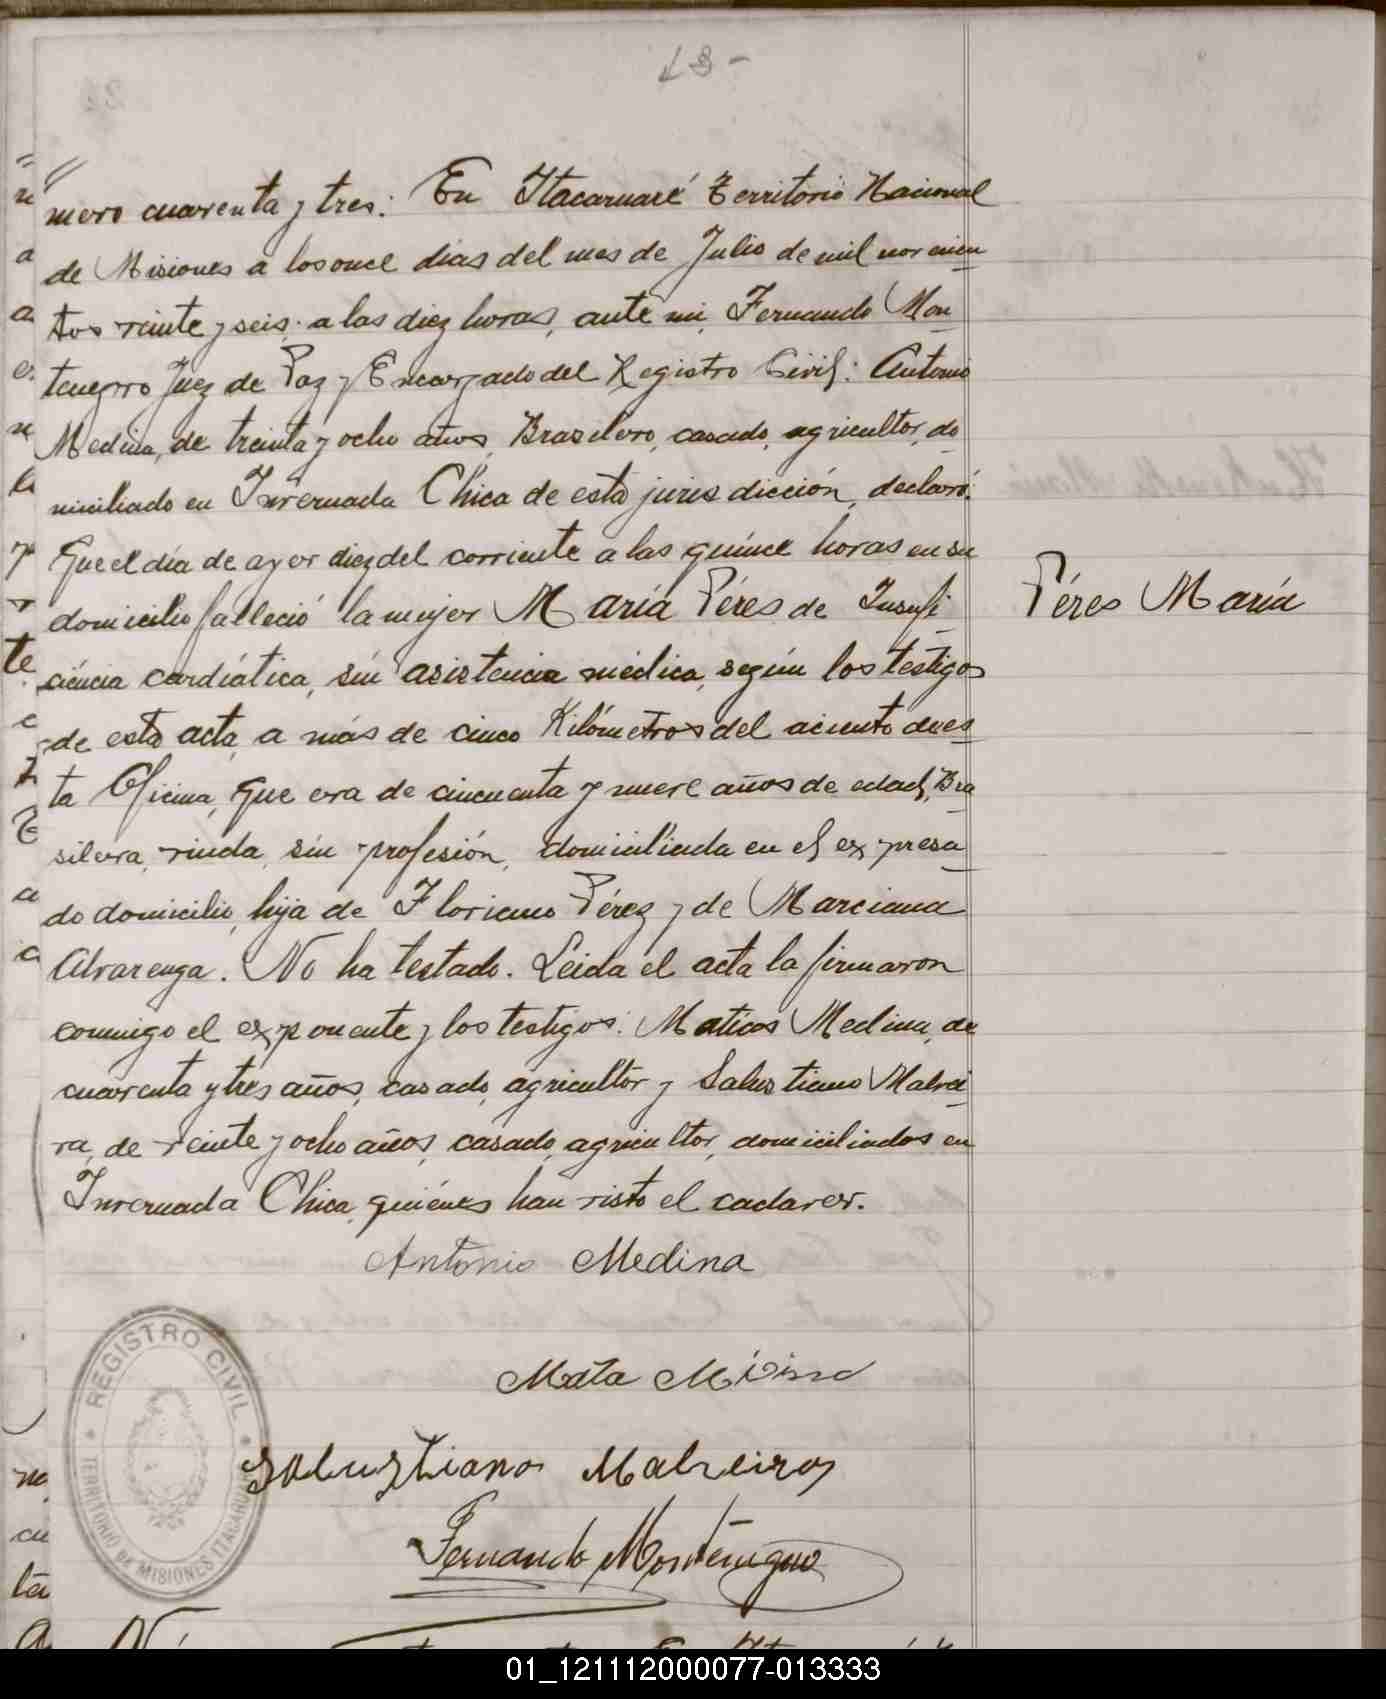 43 -
mero cuarenta y tres: En Itacaruaré Territorio Nacional
de Misiones a los once días del mes de Julio de mil novecien
tos veinte y seis a las diez horas, ante mi, Fernando Mon
tenegro Juez de Paz y Encargado del Registro Civil: Antonio
Medina, de treinta y ocho años, Brasilero, casado, agricultor, do
miciliado en Invernada Chica de esta jurisdicción, declaró:
Que el día de ayer diez del corriente a las quince horas en su
domicilio falleció la mujer María Péres de Insufi
Péres María
ciéncia cardiática, sin asistencia médica, según los testigos
de esta acta, a más de cinco Kilómetros del aciento de es
ta Oficina, que era de cincuenta y nueve años de edad, Bra
silera, viuda, sin profesión, domiciliada en el expresa
do domicilio, hija de Floriano Pérez y de Marciana
Alvarenga. No ha testado. Leida el acta la firmaron
conmigo el exponente y los testigos: Matías Medina, de
cuarenta y tres años, casado, agricultor y Salustiano Malvei
ra, de veinte y ocho años, casado, agricultor, domiciliados en
Invernada Chica, quiénes han visto el cadaver.
Antonio Medina
REGISTRO CIVIL
TERRITORIO DE MISIONES ITACARUARE
Salustiano Malveira
Fernando Montenegro
01_121112000077-013333